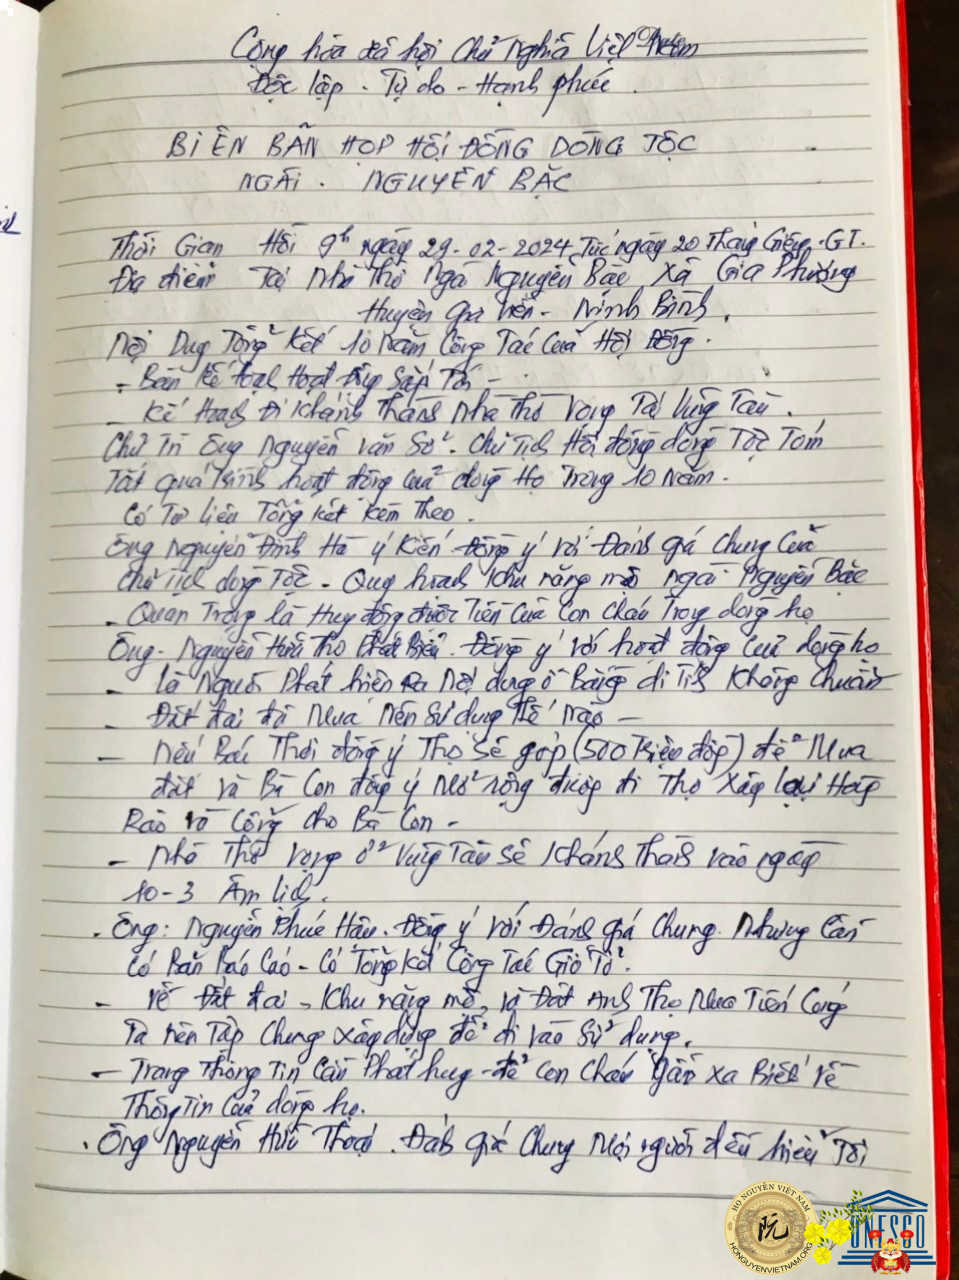 Cộng hòa xã hội Chủ Nghĩa Việt Nam
Độc lập - Tự do - Hạnh phúc.
BIÊN BẢN HỌP HỘI ĐỒNG DÒNG TỘC
NGÀI. NGUYỄN BẶC
Thời Gian Hồi 9h ngày 29-02-2024 Tức ngày 20 Tháng Giêng. GT.
Địa điểm Tại Nhà Thờ Ngài Nguyễn Bặc xã Gia Phương
Huyện Gia Viễn - Ninh Bình.
Nội Dung Tổng kết 10 Năm Công Tác Của Hội Đồng.
- Bàn Kế hoạch Hoạt động Sắp Tới -
- Kế Hoạch Đi Khánh Thành Nhà Thờ Vọng Tại Vũng Tàu.
Chủ Trì Ông Nguyễn Văn Sơ. Chủ Tịch Hội đồng dòng Tộc Tóm
Tắt quá trình hoạt động của dòng Họ Trong 10 Năm.
Có Tư liệu Tổng kết kèm Theo.
Ông Nguyễn Đình Hà ý Kiến Đồng ý với Đánh giá Chung Của
Chủ Tịch dòng Tộc - Quy hoạch Khu năng mộ ngài Nguyễn Bặc
- Quan Trọng là Huy động được Tiền Của Con Cháu Trong dòng họ
Ông - Nguyễn Hữu Thọ Phát Biểu. Đồng ý với hoạt động Của dòng họ
- là Người Phát hiện ra Nội dung ở Bảng di Tích Không Chuẩn
- Đất đai đã Mua Nên Sử dụng Thế Nào -
- Nếu Bác Thời đồng ý Thọ Sẽ góp (500 Triệu đồng) để Mua
đất và Bà Con đồng ý Mở rộng đường đi Thọ Xây lại Hàng
Rào và Cổng cho Bà Con -
- Nhà Thờ Vọng ở Vũng Tàu sẽ Khánh Thành vào ngày
10-3 Âm lịch.
. Ông: Nguyễn Phúc Hậu. Đồng ý với Đánh giá Chung. Nhưng Cần
Có Bản Báo Cáo - Có Tổng Kết Công Tác Giỗ Tổ.
- Về Đất đai, Khu năng mộ, và Đất Anh Thọ Mua Tiến Cúng
Ta nên Tập Chung xây dựng để đi vào Sử dụng.
- Trang Thông Tin Cần Phát huy - để Con Cháu Gần xa Biết Về
Thông Tin Của dòng họ.
. Ông Nguyễn Hữu Thoại. Đánh giá Chung Mọi người đều hiểu Tôi
HỌ NGUYỄN VIỆT NAM
阮
HONGUYENVIETNAM.ORG
UNESCO